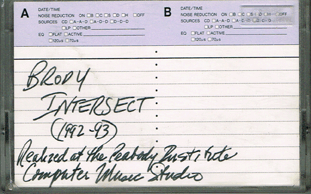 A DATE/TIME B DATE/TIME
NOISE REDUCTION ON B C S H OFF NOISE REDUCTION ON B C S H OFF
SOURCES CD SOURCES CD
LP OTHER LP OTHER
EQ FLAT ACTIVE EQ FLAT ACTIVE
120μs 70μs 120μs 70μs
BRODY
INTERSECT
(1992-93)
Realized at the Peabody Institute
Computer Music Studio